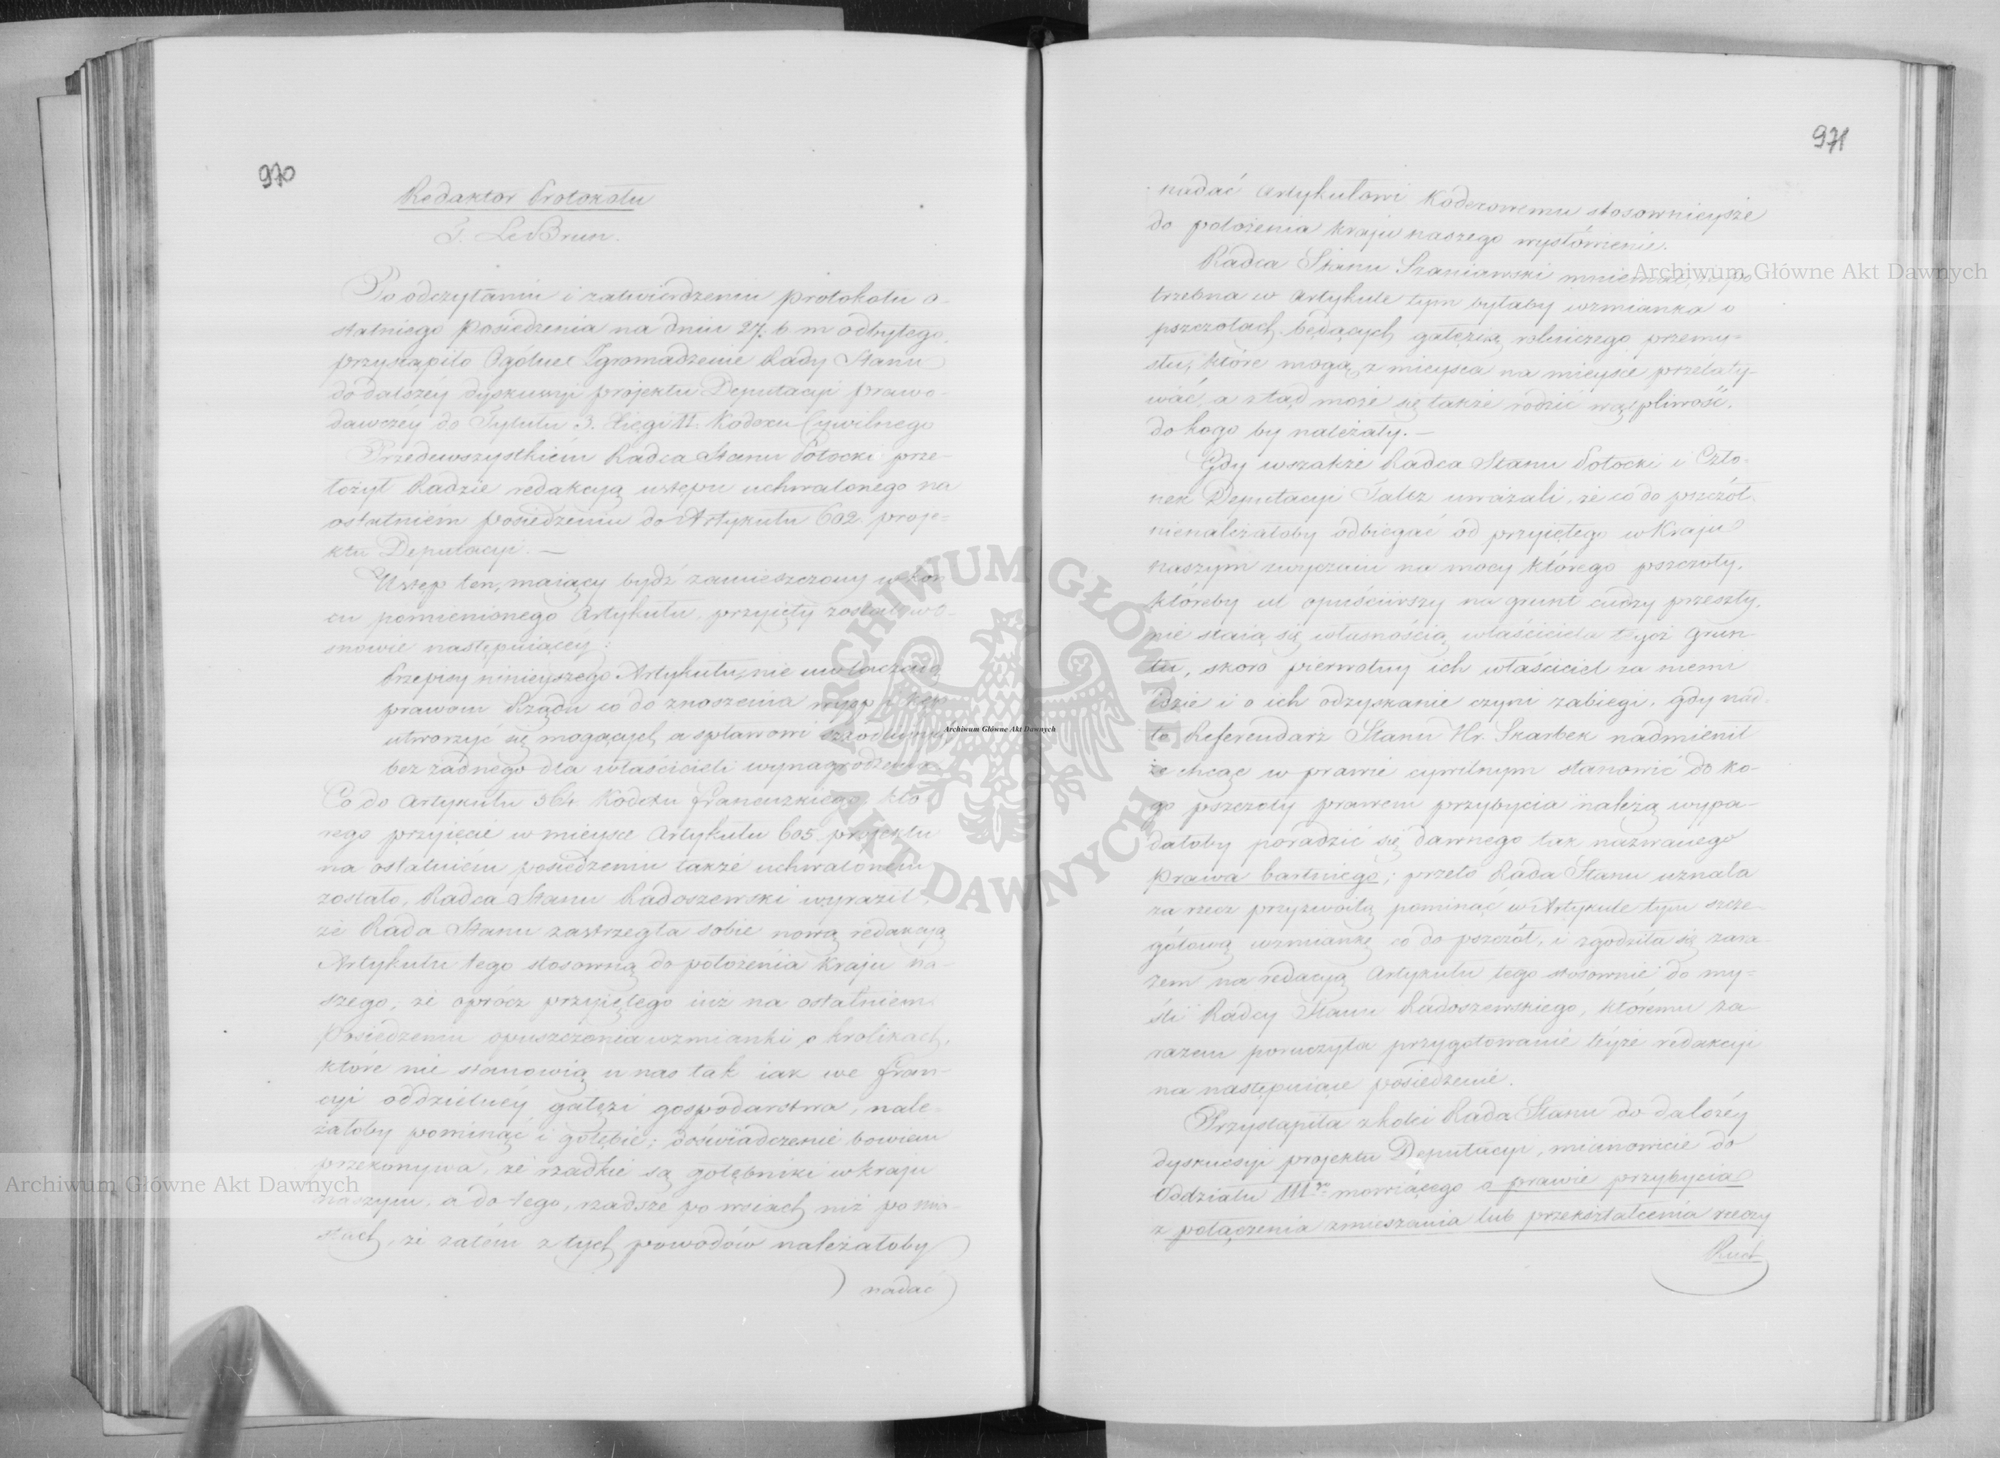 970
Redaktor Protokołu
F. LeBrun.
Po odczytaniu i zatwierdzeniu protokołu o-
statniego posiedzenia na dniu 27. b m odbytego,
przystąpiło Ogólne Zgromadzenie Rady Stanu
do dalszéy dyskussyi projektu Deputacyi prawo-
dawczéy do Tytułu 3. Xięgi II. Kodexu Cywilnego
Przedewszystkiém Radca Stanu Potocki prze-
łożył Radzie redakcyą ustępu uchwalonego na
ostatniém posiedzeniu do Artykułu 602 proje-
ktu Deputacyi. —
Ustęp ten, maiący bydź zamieszczony w koń-
cu pomienionego Artykułu, przyięty został w o-
snowie następuiącéy:
Przepisy ninieyszego Artykułu, nie uwłaczaią
prawom Rządu co do znoszenia wysp i kęp
utworzyć się mogących, a spławowi szkodliwych
bez żadnego dla właścicieli wynagrodzenia.
Co do Artykułu 564 Kodexu francuzkiego, któ-
rego przyjęcie w mieysce Artykułu 605 projektu
na ostatniém posiedzeniu także uchwaloném
zostało, Radca Stanu Radoszewski wyraził,
że Rada Stanu zastrzegła sobie nową redakcyą
Artykułu tego stosowną do położenia kraju na-
szego, że oprócz przyiętego iuż na ostatniem
posiedzeniu opuszczenia wzmianki o królikach,
które nie stanowią u nas tak iak we Fran-
cyi oddzielnéy gałęzi gospodarstwa, nale-
żałoby pominąć i gołębie; doświadczenie bowiem
przekonywa, że rzadkie są gołębniki w kraju
naszym, a do tego, rzadsze po wsiach niż po mia-
stach, że zatém z tych powodów należałoby
nadać
971
nadać Artykułowi Kodexowemu stosownieysze
do położenia kraju naszego wysłowienie.
Radca Stanu Szaniawski mniemał, iż po
trzebna w Artykule tym byłaby wzmianka o
pszczołach będących gałęzią rolniczego przemy-
słu, które mogą z mieysca na mieysce przelaty-
wać, a ztąd może się także rodzić wątpliwość,
do kogo by należały. —
Gdy wszakże Radca Stanu Potocki i Czło-
nek Deputacyi Faltz uważali, że co do pszczół
nienależałoby odbiegać od przyiętego w Kraju
naszym zwyczaiu na mocy którego pszczoły,
któreby ul opuściwszy na grunt cudzy przeszły,
nie staią się własnością właściciela tegoż grun-
tu, skoro pierwotny ich właściciel za niemi
idzie i o ich odzyskanie czyni zabiegi, gdy nad-
to Referendarz Stanu Hr. Skarbek nadmienił
że chcąc w prawie cywilnym stanowić do ko-
go pszczoły prawem przybycia należą wypa-
dałoby poradzić się dawnego tak nazwanego
prawa bartnego; przeto Rada Stanu uznała
za rzecz przyzwoitą pominąć w Artykule tym szcze-
gółową wzmiankę co do pszczół, i zgodziła się zara-
zem na redakcyą Artykułu tego stosownie do my-
śli Radcy Stanu Radoszewskiego, któremu za-
razem poruczyła przygotowanie téyże redakcyi
na następuiące posiedzenie.
Przystąpiła z kolei Rada Stanu do dalszéy
dyskussyi projektu Deputacyi, mianowicie do
Oddziału III<sup>go</sup> mowiącego o prawie przybycia
z połączenia zmieszania lub przekształcenia rzeczy
Ruch
Archiwum Główne Akt Dawnych
Archiwum Główne Akt Dawnych
Archiwum Główne Akt Dawnych
ARCHIWUM GŁÓWNE AKT DAWNYCH